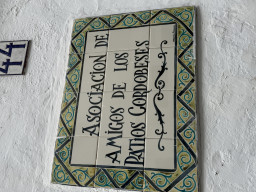 44
ASOCIACION DE
AMIGOS DE LOS
PATIOS CORDOBESES